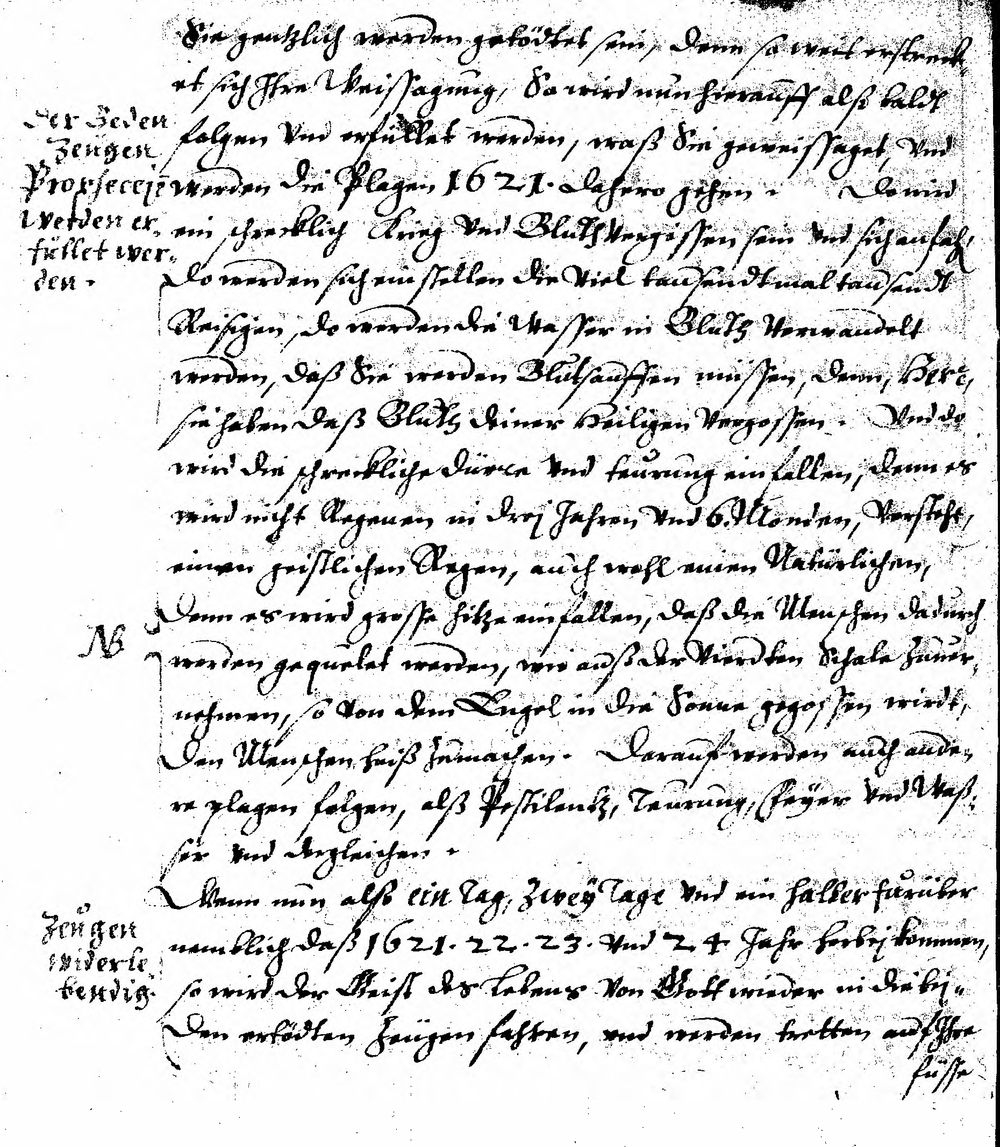 Sie gentzlich werden getödtet sein, denn so weit erstreck-
et sich Ihre Weissagung, So wird nun hierauff alß baldt
Der Beden
Zeugen
Propheceien
werden er-
füllet wer-
den.
folgen Vnd erfüllet werden, waß Sie geweissaget, Vnd
werden die Plagen 1621. dahero gehen. Da wird
ein schrecklich Krieg Vnd Bluthvergissen sein Vnd sich anfah,
Do werden sich einstellen die Viel tausendtmal tausendt
Reisigen, do werden die Wasser in Bluth Verwandelt
werden, daß Sie werden Blutsauffen müssen, denn, Herr,
sie haben daß Bluth deiner Heiligen Vergossen. Vnd do
wird die schreckliche dürre Vnd teurung einfallen, denn es
wird nicht Regenen in drej Jahren Vnd 6. Monden, Versteht,
einen geistlichen Regen, auch wohl einen Natürlichen,
NB
Denn es wird grosse hitze einfallen, daß die Menschen dadurch
werden gequelet werden, wie auß der Vierdten Schale zuuer-
nehmen, so von dem Engel in die Sonne gegossen wirdt,
Den Menschen heiß zumachen. Darauf werden auch ande-
re plagen folgen, alß Pestilentz, Teurung, Feyer Vnd Waß-
ser Vnd dergleichen.
Wenn nun also ein Tag, Zwey Tage Vnd ein halber fürüber
Zeugen
widerle-
bendig.
nemblich daß 1621. 22. 23. Vnd 24 Jahr herbej kommen,
so wird der Geist des Lebens Von Gott wieder in die bej-
den ertödten Zeugen fahren, vnd werden tretten auf Ihre
füsse